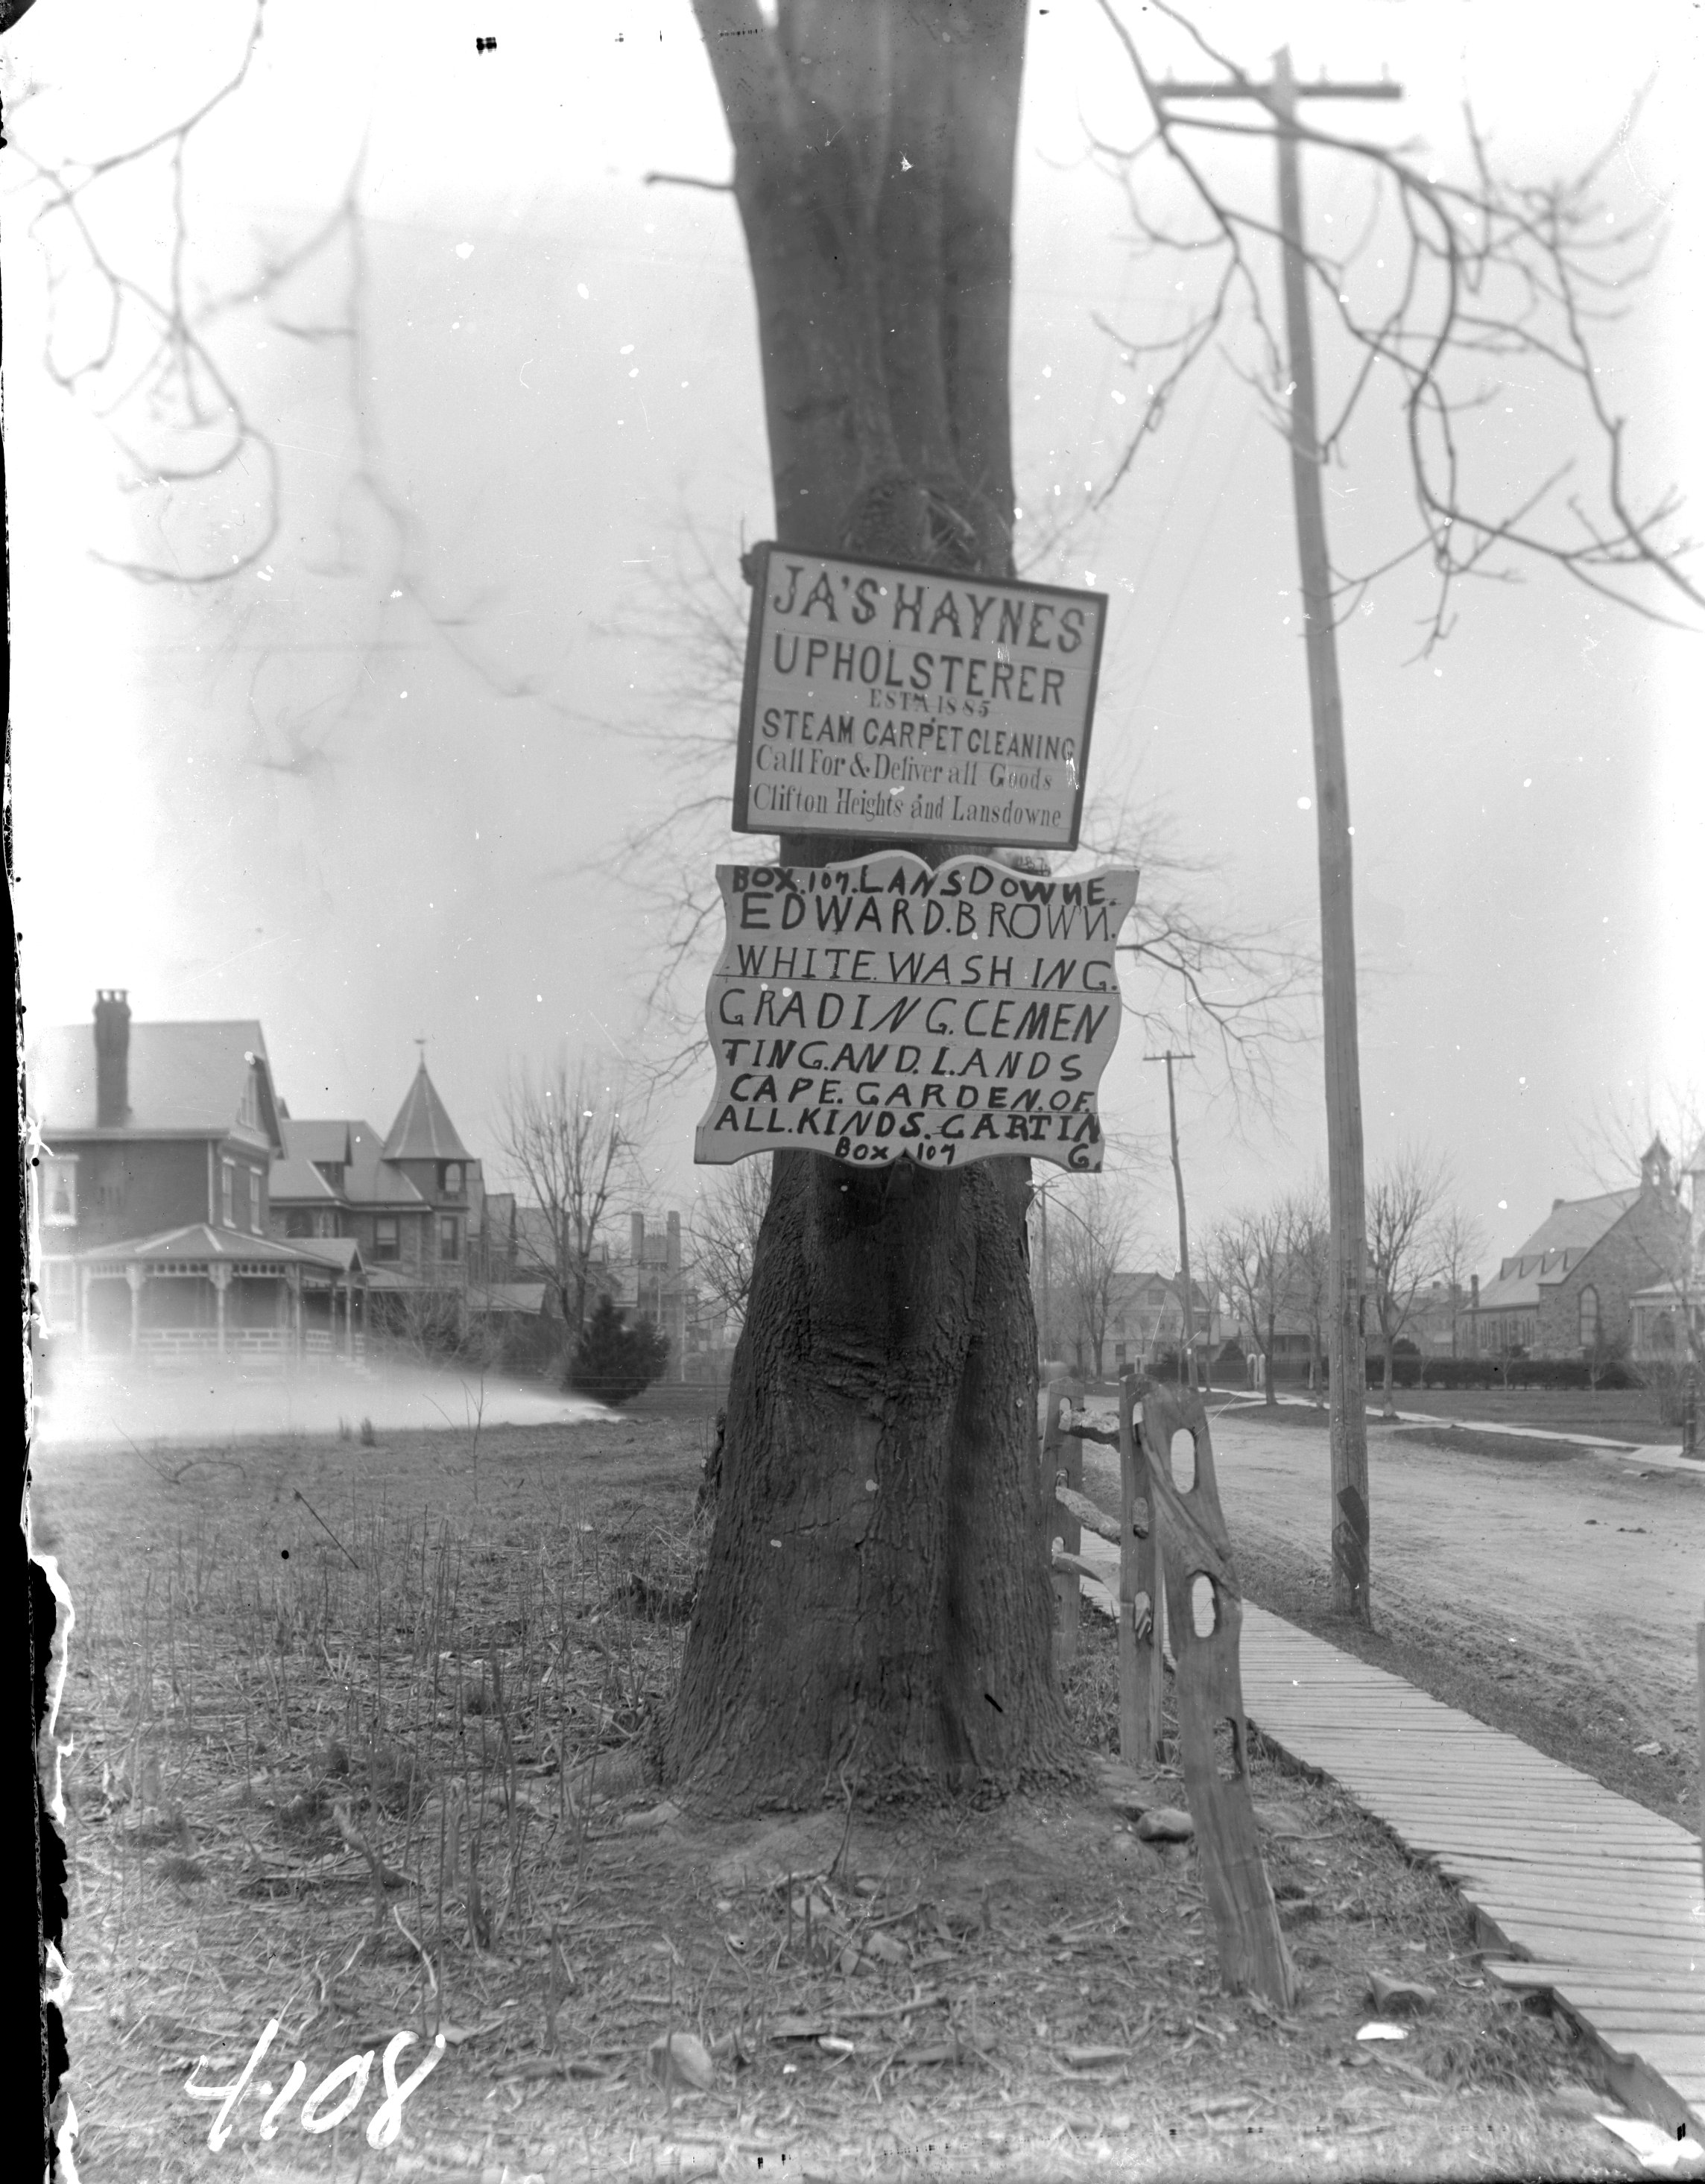 JA'S HAYNES
UPHOLSTERER
ESTA 1885
STEAM CARPET CLEANING
Call For & Deliver all Goods
Clifton Heights and Lansdowne
BOX.107.LANSDOWNE.
EDWARD.BROWN.
WHITE.WASHING.
GRADING.CEMEN
TING.AND.LANDS
CAPE.GARDEN.OF.
ALL.KINDS.CARTIN
G.
BOX 107
4108